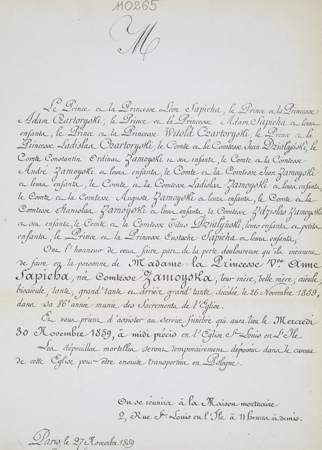 M0265
M
Le Prince et la Princesse Léon Sapieha, le Prince et la Princesse
Adam Czartoryski, le Prince et la Princesse Adam Sapieha et leurs
enfants, le Prince et la Princesse Witold Czartoryski, le Prince et la
Princesse Ladislas Czartoryski, le Comte et la Comtesse Jean Dzialyński, le
Comte Constantin Ordinat Zamoyski et ses enfants, le Comte et la Comtesse
André Zamoyski et leurs enfants, le Comte et la Comtesse Jean Zamoyski
et leurs enfants, le Comte et la Comtesse Ladislas Zamoyski et leurs enfants,
le Comte et la Comtesse Auguste Zamoyski et leurs enfants, le Comte et la
Comtesse Stanislas Zamoyski et leurs enfants, le Comtesse Zdzislas Zamoyski
et ses enfants, le Comte et la Comtesse Titus Dzialyński, leurs enfants et petits
enfants, le Prince et la Princesse Eustache Sapieha et leurs enfants,
Ont l'honneur de vous faire part de la perte douloureuse qu'ils viennent
de faire en la personne de Madame la Princesse Vve Anne
Sapieha, née Comtesse Zamoyska, leur mère, belle mère, aïeule,
bisaïeule, tante, grand'tante et arrière grand'tante, décédée le 26 Novembre 1859,
dans sa 86e année munie des Sacrements de l'Eglise.
Et vous prient d'assister au service funèbre qui aura lieu le Mercredi
30 Novembre 1859, à midi précis en l'Eglise St Louis en l'Ile.
Les dépouilles mortelles seront temporairement déposées dans le caveau
de cette Eglise pour être ensuite transportées en Pologne.
On se réunira à la Maison mortuaire
2, Rue St Louis en l'Ile à 11 heures et demie.
Paris, le 27 Novembre 1859